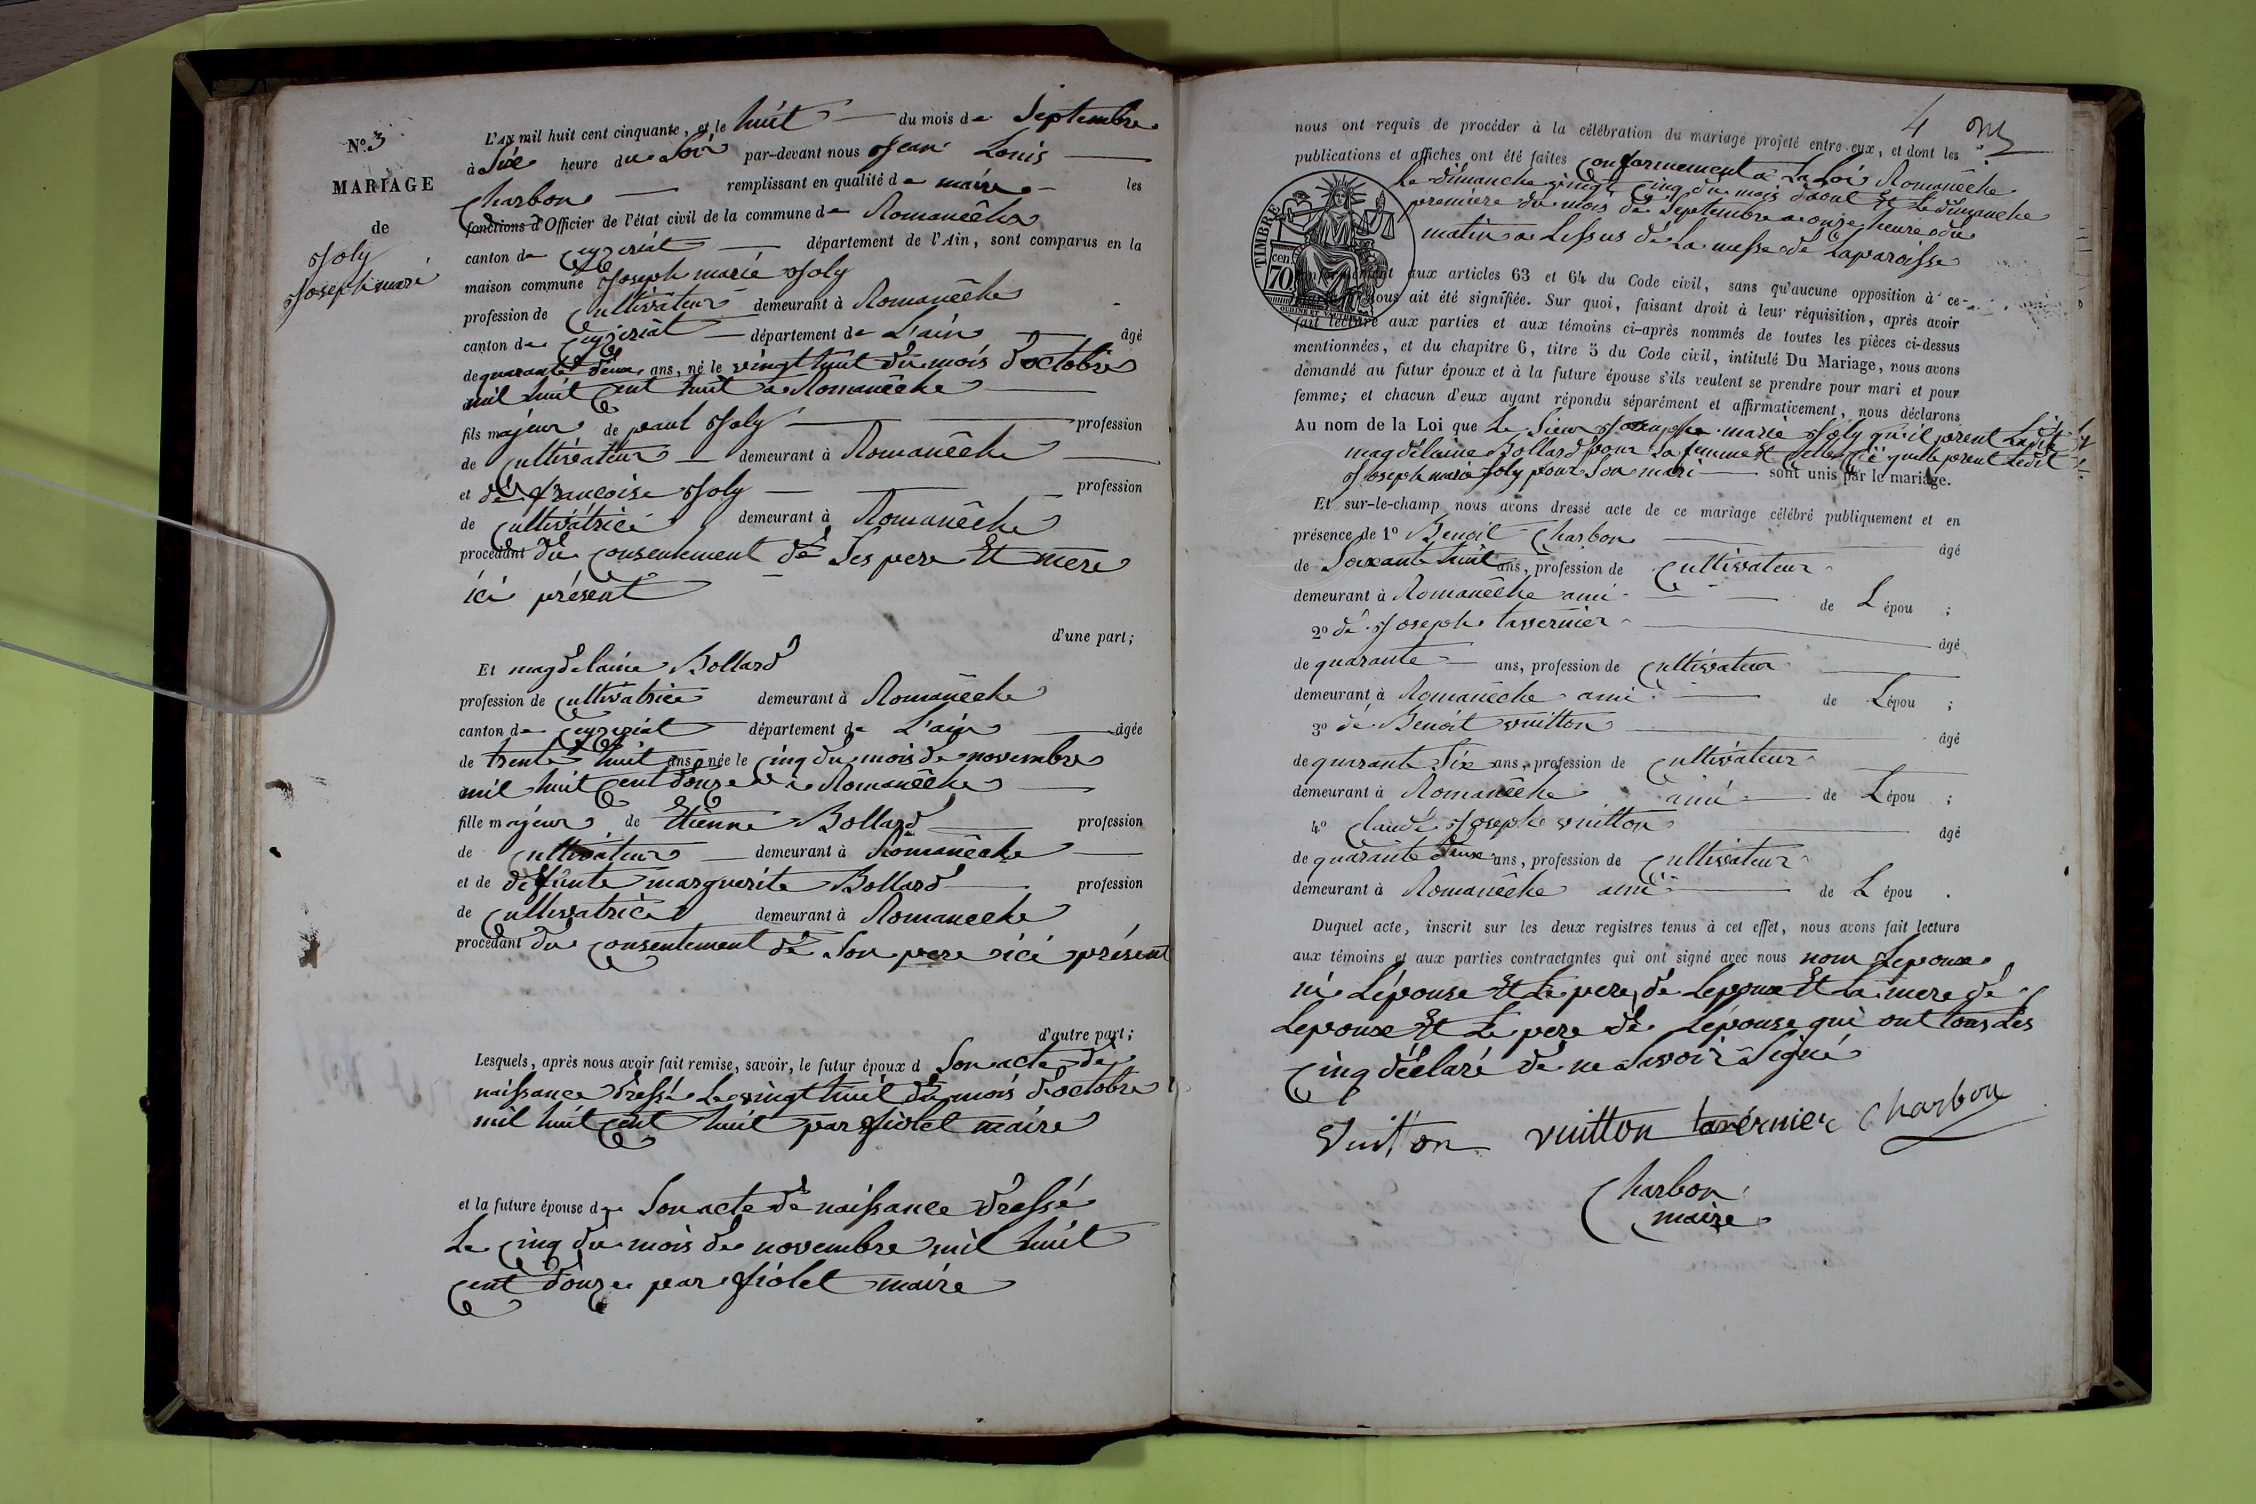 N.° 3
MARIAGE
de
Joly
Joseph marié
L'AN mil huit cent cinquante, et le huit du mois de Septembre
à Six heure du Soir par-devant nous Jean Louis
Charbon remplissant en qualité de maire les
fonctions d'Officier de l'état civil de la commune de Romanêche
canton de Ceyzeriat département de l'Ain, sont comparus en la
maison commune Joseph marié Joly
profession de Cultivateur demeurant à Romanêche
canton de Ceyzeriat département de L'ain âgé
de quarante deux ans, né le vingt huit du mois d'octobre
mil huit Cent huit a Romanêche
fils majeur de paul Joly profession
de Cultivateur demeurant à Romanêche
et de françoise Joly profession
de Cultivatrice demeurant à Romanêche
procédant du Consentement de Ses pere Et mere
ici présent
d'une part;
Et magdelaine Bollard
profession de Cultivatrice demeurant à Romanêche
canton de Ceyzeriat département de L'ain âgée
de trente huit ans, née le Cinq du mois de novembre
mil huit Cent douze a Romanêche
fille majeur de Etienne Bollard profession
de Cultivateur demeurant à Romanêche
et de defunte marguerite Bollard profession
de Cultivatrice demeurant à Romaneche
procédant du Consentement de Son pere ici présent
d'autre part;
Lesquels, après nous avoir fait remise, savoir, le futur époux d Son acte de
naissance dressé Le vingt huit du mois d'octobre
mil huit Cent huit par fiolet maire
et la future épouse de Son acte de naissance dressé
Le Cinq du mois de novembre mil huit
Cent douze par fiolet maire
4
nous ont requis de procéder à la célébration du mariage projeté entre eux, et dont les
publications et affiches ont été faites Conformement a La Loi Romanêche
Le dimanche vingt Cinq du mois d'aout Et Le dimanche
première du mois de Septembre a onze heure du
matin a Lissus de La messe de Laparoisse
TIMBRE
cen 70
conformément aux articles 63 et 64 du Code civil, sans qu'aucune opposition à ce
nous ait été signifiée. Sur quoi, faisant droit à leur réquisition, après avoir
fait lecture aux parties et aux témoins ci-après nommés de toutes les pièces ci-dessus
mentionnées, et du chapitre 6, titre 5 du Code civil, intitulé Du Mariage, nous avons
demandé au futur époux et à la future épouse s'ils veulent se prendre pour mari et pour
femme; et chacun d'eux ayant répondu séparément et affirmativement, nous déclarons
Au nom de la Loi que Le Sieur Joseph marie Joly qu'il prent Ladite
magdelaine Bollard pour Sa femme Et Celle Ci quelle prent Ledit
Joseph marie Joly pour Son mari sont unis par le mariage.
Et sur-le-champ nous avons dressé acte de ce mariage célébré publiquement et en
présence de 1° Benoit Charbon âgé
de Soixante huit ans, profession de Cultivateur
demeurant à Romanêche ami de L épou ;
2° de Joseph tavernier âgé
de quarante ans, profession de Cultivateur
demeurant à Romanêche ami de Lépou ;
3° de Benoit vuitton âgé
de quarante Six ans, profession de Cultivateur
demeurant à Romanêche ami de Lépou ;
4° Claude Joseph vuitton âgé
de quarante deux ans, profession de Cultivateur
demeurant à Romanêche ami de L épou .
Duquel acte, inscrit sur les deux registres tenus à cet effet, nous avons fait lecture
aux témoins et aux parties contractantes qui ont signé avec nous nom Lepoux
ni Lépouse Et Le pere de Lepoux Et La mere de
Lepoux Et Le pere de Lépouse qui ont tous Les
Cinq déclaré de ne Savoir Signé
Vuitton vuitton tavérnier Charbon
Charbon
maire